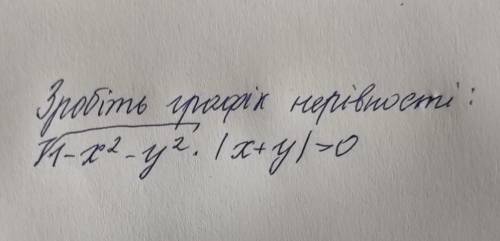 Зробіть графік нерівності:
√1-x²-y² · |x+y|>0